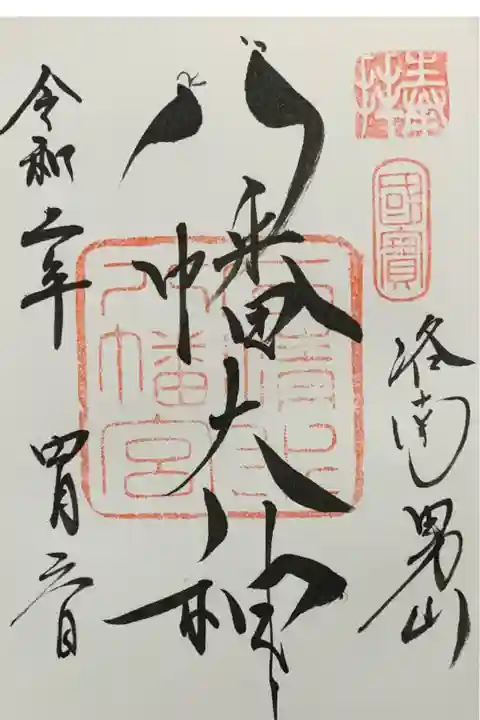 奉拝
國寶
洛南男山
八幡大神
石清水
八幡宮
令和二年
四月六日